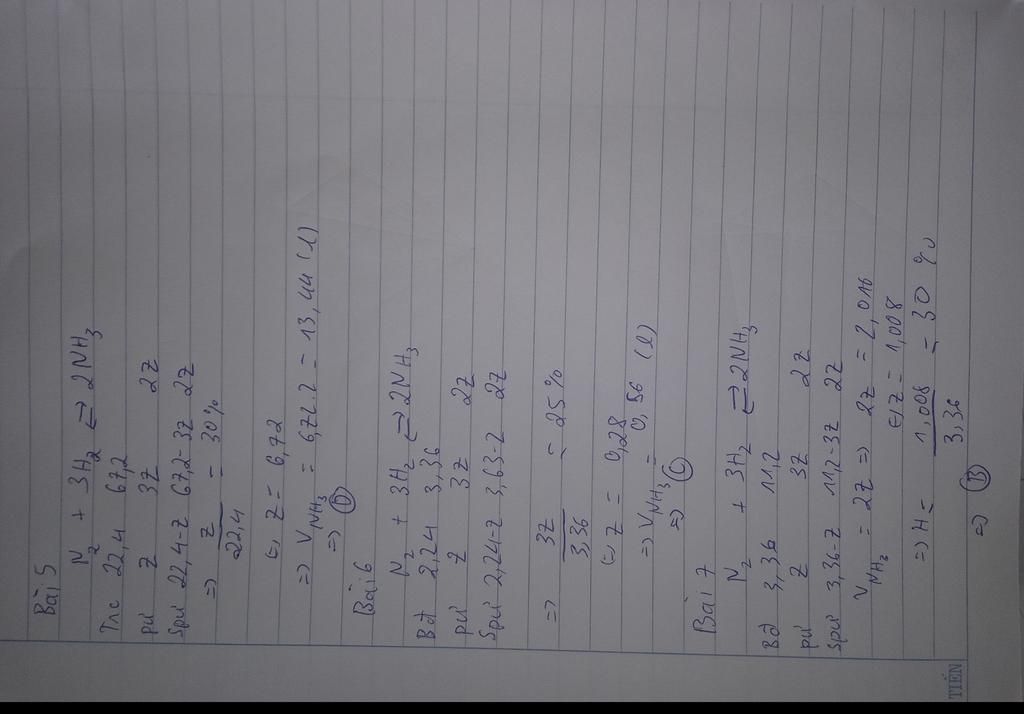 Bài 5
N2 + 3H2 ⇌ 2NH3
Tlc 22,4 67,2
pư z 3z 2z
Spư 22,4-z 67,2-3z 2z
=> z/22,4 = 30%
(=) z = 6,72
=> VNH3 = 6,72.2 = 13,44 (l)
=> D
Bài 6
N2 + 3H2 ⇌ 2NH3
Bđ 2,24 3,36
pư z 3z 2z
Spư 2,24-z 3,63-2 2z
=> 3z/3,36 = 25%
(=) z = 0,28
=> VNH3 = 0,56 (l)
=> C
Bài 7
N2 + 3H2 ⇌ 2NH3
Bđ 3,36 11,2
pư z 3z 2z
Spư 3,36-z 11,2-3z 2z
VNH3 = 2z => 2z = 2,016
(=) z = 1,008
=> H = 1,008/3,36 = 30%
=> B
TIẾN